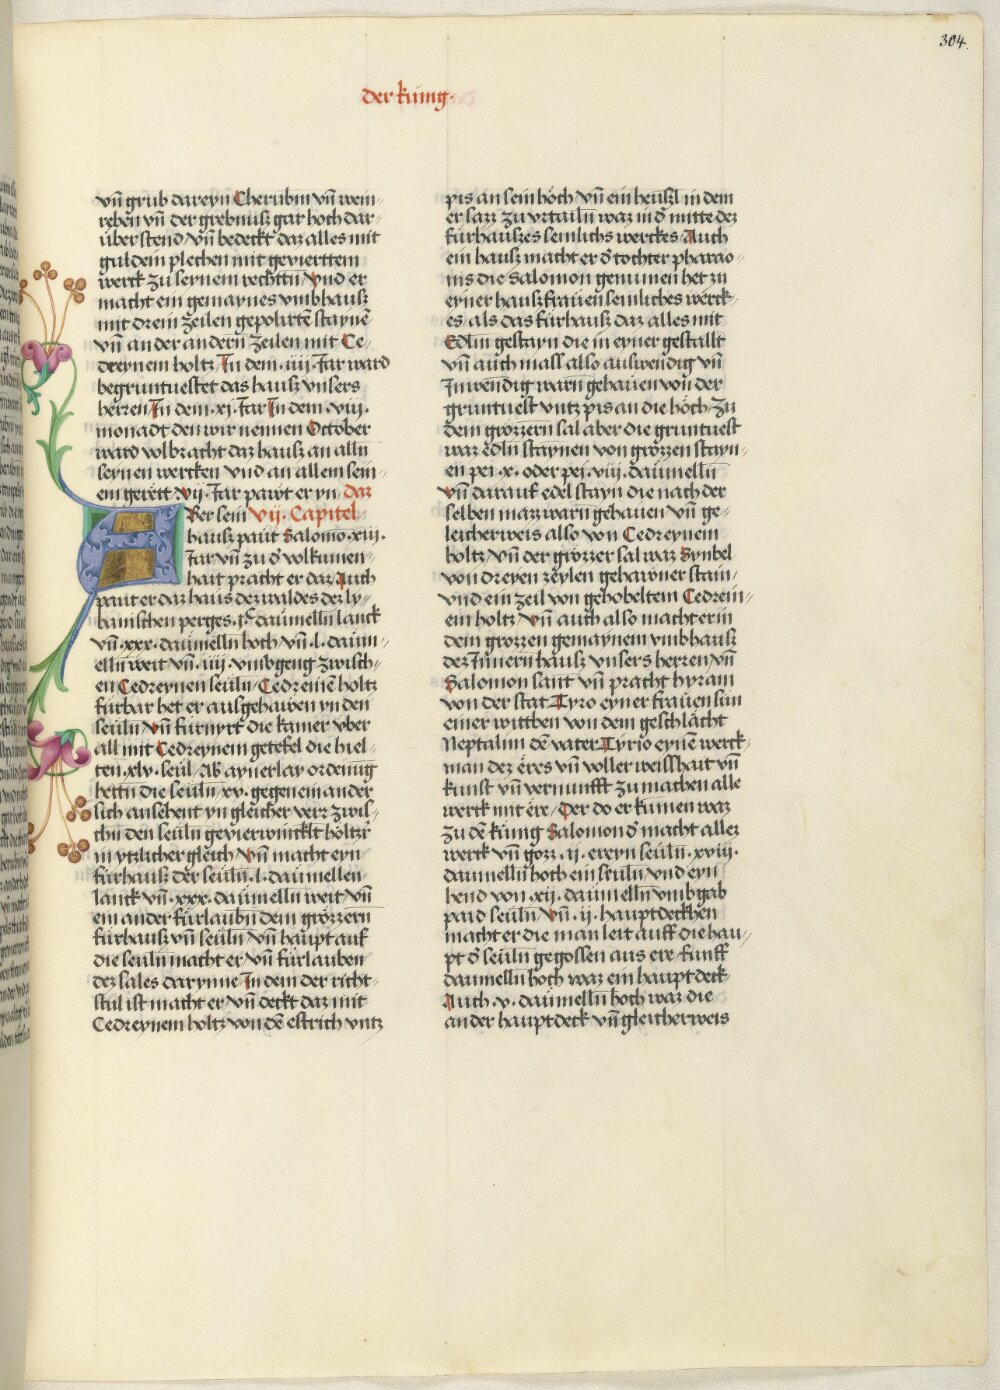 304.
der künig.
vn̄ grub dareyn Cherubin vn̄ wein-
reben vn̄ der grebnusz gar hoch dar-
überstend vn̄ bedeckt daz alles mit
guldein plechen mit geviertem
werck zu seynem rechtn̄ Vnd er
macht ein gemaynes vmbhausz
mit drein zeilen gepolirtē staynē
vn̄ an der andern zeilen mit Ce-
dreynem holtz In dem .iiii. Jar ward
begruntuestet das hausz vnsers
herren In dem .xi. Jar In dem .viii.
monadt den wir nennen October
ward volbracht daz hausz an alln̄
seynen wercken vnd an allem sein-
em gerett .vij. Jar pawt er yn daz
Ber sein vij. Capitel
hausz paut Salomō .xiii.
Jar vn̄ zu d̄ volkumen-
hait pracht er daz Auch
paut er daz haus dez waldes dez ly-
banischen perges .jᶜ daumelln̄ lanck
vn̄ .xxx. daumelln̄ hoch vn̄ .l. daum-
elln̄ weit vn̄ .iiij. vmbgeng zwisch-
en Cedreynen seuln̄ Cedreinē holtz
fürbar het er ausgehawen yn den
seuln̄ vn̄ fürnyrt die kamer vber
all mit Cedreynem getefel die hiel-
ten .xlv. seul Ab aynerlay ordenuḡ
hettn̄ die seuln̄ .xv. gegen einander
sich ansehent yn gleicher verz zwis-
chn̄ den seuln̄ gevierwincklt höltzr
in ytzlicher gleich vn̄ macht eyn
fürhausz der seuln̄ .l. daumellen
lanck vn̄ .xxx. daumelln̄ weit vn̄
ein ander fürlaubn̄ dem grözzern
fürhausz vn̄ seuln̄ vn̄ haupt auf
die seuln̄ macht er vn̄ fürlauben
dez sales darynne In dem der richt-
stul ist macht er vn̄ deckt daz mit
Cedreynem holtz von dē estrich vntz
pis an sein höch vn̄ ein heuszl in dem
er sazz zu vrtailn̄ waz in d̄ mitte dez
fürhauszes semlichs werckes Auch
ein hausz macht er d̄ tochter pharao-
nis die Salomon genumen het zu
eyner hauszfrauen semliches werck-
es als das fürhausz daz alles mit
Edlm gestayn die in eyner gestallt
vn̄ auch mass also auswendig vn̄
Inwendig warn̄ gehauen von der
gruntuest vntz pis an die höch zu
dem grözzern sal aber die gruntuest
waz ēdln̄ staynen von grözzen stayn-
en pei .x. oder pei .viii. daumelln̄
Vn̄ darauf edel stayn die nach der
selben mazz warn̄ gehauen vn̄ ge-
leicherweis also von Cedreynem
holtz vn̄ der grözzer sal waz Synbel
von dreyen zeylen gehawner stain-
vnd ein zeil von gehobeltem Cedrein-
em holtz Vn̄ auch also macht er in
dem grozzen gemaynem vmbhausz
dez Innern hausz vnsers herren vn̄
Salomon sant vn̄ pracht hyram
von der stat Tyro eyner frauen sun
einer wittben von dem geschlächt
Neptalim dē vater Tyrio eynē werck-
man dez eres vn̄ voller weisshait vn̄
kunst vn̄ vernunfft zu machen alle
werck mit ere Der do er kumen waz
zu dē künig Salomon d̄ macht allez
werck vn̄ gozz .ij. ereyn seuln̄ .xviii.
daumelln̄ hoch ein seuln̄ vnd eyn
hend von .xij. daumelln̄ vmbgab
paid seuln̄ Vn̄ .ij. hauptdeckhen
macht er die man leit auff die hau-
pt d̄ seuln̄ gegossen aus ere funff
daumelln̄ hoch waz ein hauptdeck
Auch .v. daumelln̄ hoch waz die
ander hauptdeck vn̄ gleicherweis